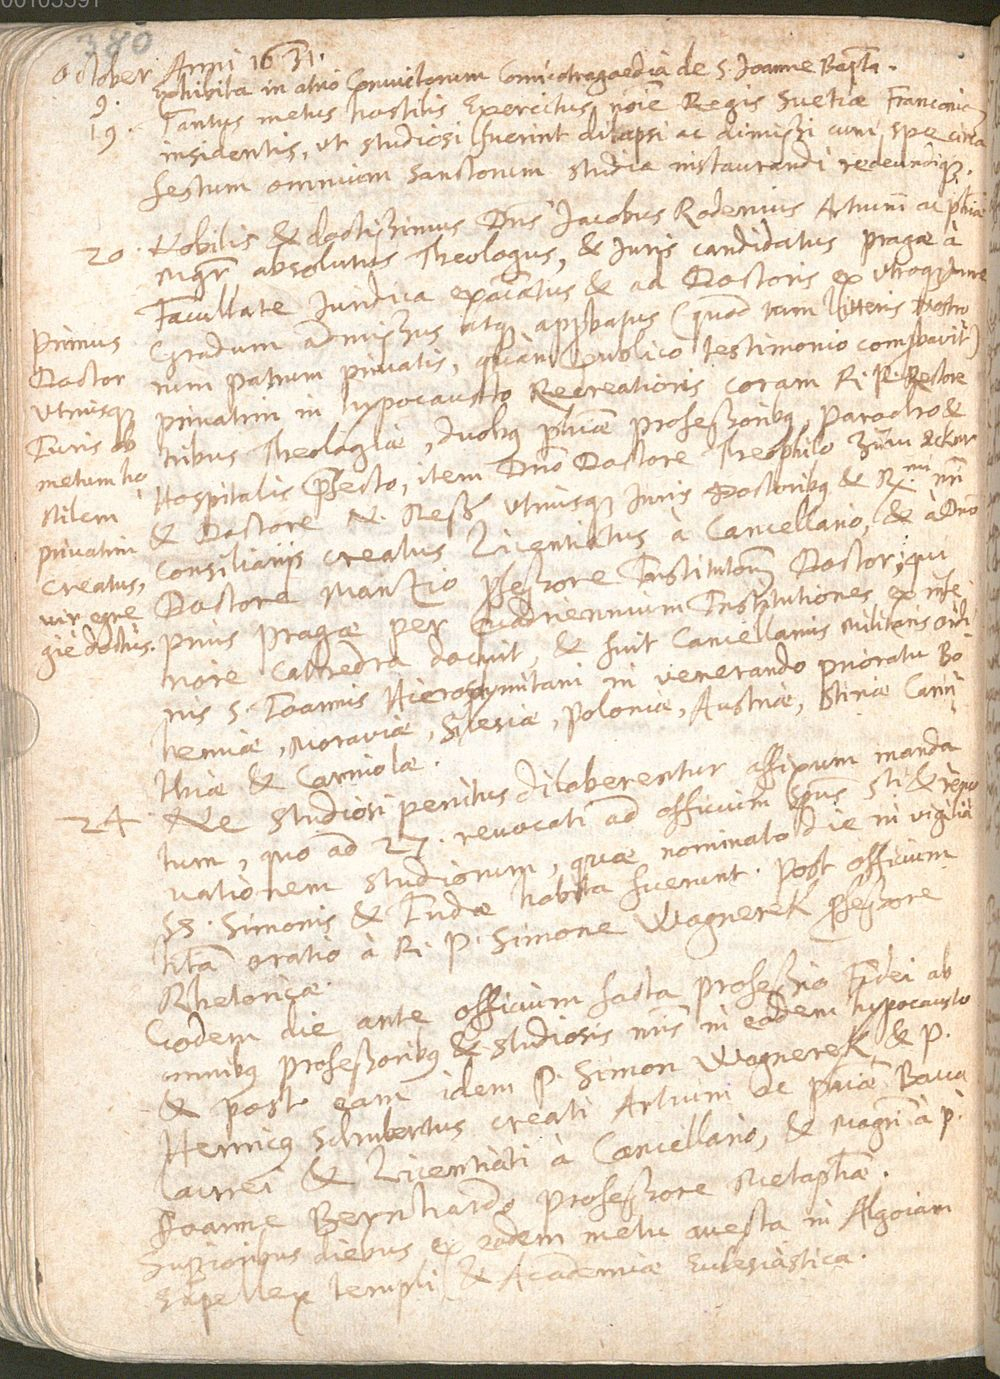 00105591
380
October Anni 1631.
9. Exhibita in atrio Convictorum Comicotragaedia de S. Joanne Bapta.
19. Tantus metus hostilis Exercitus noie Regis Suetiae Franconiae
insidentis, ut studiosi fuerint dilapsi ac dimissi cum spe circa
festum omnium Sanctorum studia instaurandi redeundiq;.
20. Nobilis & doctissimus Dns Jacobus Rodenius Artium ac phiae
Mgr absolutus Theologus, & Iuris candidatus Pragae à
Facultate Iuridica examatus & ad Doctoris ex utroq; iure
Gradum admissus atq; approbatus (quod tam litteris nostro
rum Patrum privatis, quàm publico testimonio comprobavit)
privatim in hypocausto Recreationis coram R. P. Rectore
tribus Theologiae, duobq phiae professoribq, Parocho &
Hospitalis Pfecto, item Dno Doctore Theophilo
& Doctore N. Ress utriusque Iuris Doctoribq & Rmi nri
Consiliarijs creatus Licentiatus à Cancellario, & à Dno
Doctore Mantzio pfessore Institutionum Doctor; qui
prius Pragae per Quadriennium Institutiones ex infe
riore Cathedra docuit, & fuit Cancellarius militaris ordi
nis S. Ioannis Hierosolymitani in venerando prioratu Bo
hemiae, Moraviae, Silesiae, Poloniae, Austriae, Stiriae Carin
thiae & Carniolae.
Primus
Doctor
Utriusque
Iuris ob
metum ho
stilem
privatim
creatus,
vir egre
giè doctus.
24. Ne studiosi penitus dilaberentur affixum manda
tum, quo ad 27. revocati ad officium Spus Sti & reno
vationem studiorum, quae nominato die in vigilia
SS. Simonis & Iudae habita fuerunt. Post officium
oratio à R. P. Simone Wagnerek pfessore
Rhetoricae.
Eodem die ante officium facta professio Fidei ab
omnibq professoribq & studiosis nris in eodem hypocausto
& post eam idem P. Simon Wagnerek & P.
Henricq Schubertus creati Artium ac phiae Bacca
laurei & Licentiati à Cancellario, & Magri à P.
Ioanne Bernhardo professore Metaphae.
Superioribus diebus ex eodem metu avecta in Algoiam
Supellex templi & Academiae Ecclesiastica.